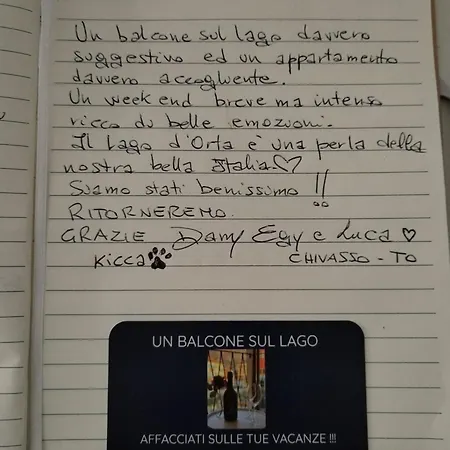 Un balcone sul lago davvero
suggestivo ed un appartamento
davvero accogliente.
Un week end breve ma intenso
ricco di belle emozioni.
Il Lago d'Orta è una perla della
nostra bella Italia.♡
Siamo stati benissimo !!
RITORNEREMO.
GRAZIE Dany Egy e Luca ♡
KICCA🐾 CHIVASSO - TO
UN BALCONE SUL LAGO
AFFACCIATI SULLE TUE VACANZE !!!